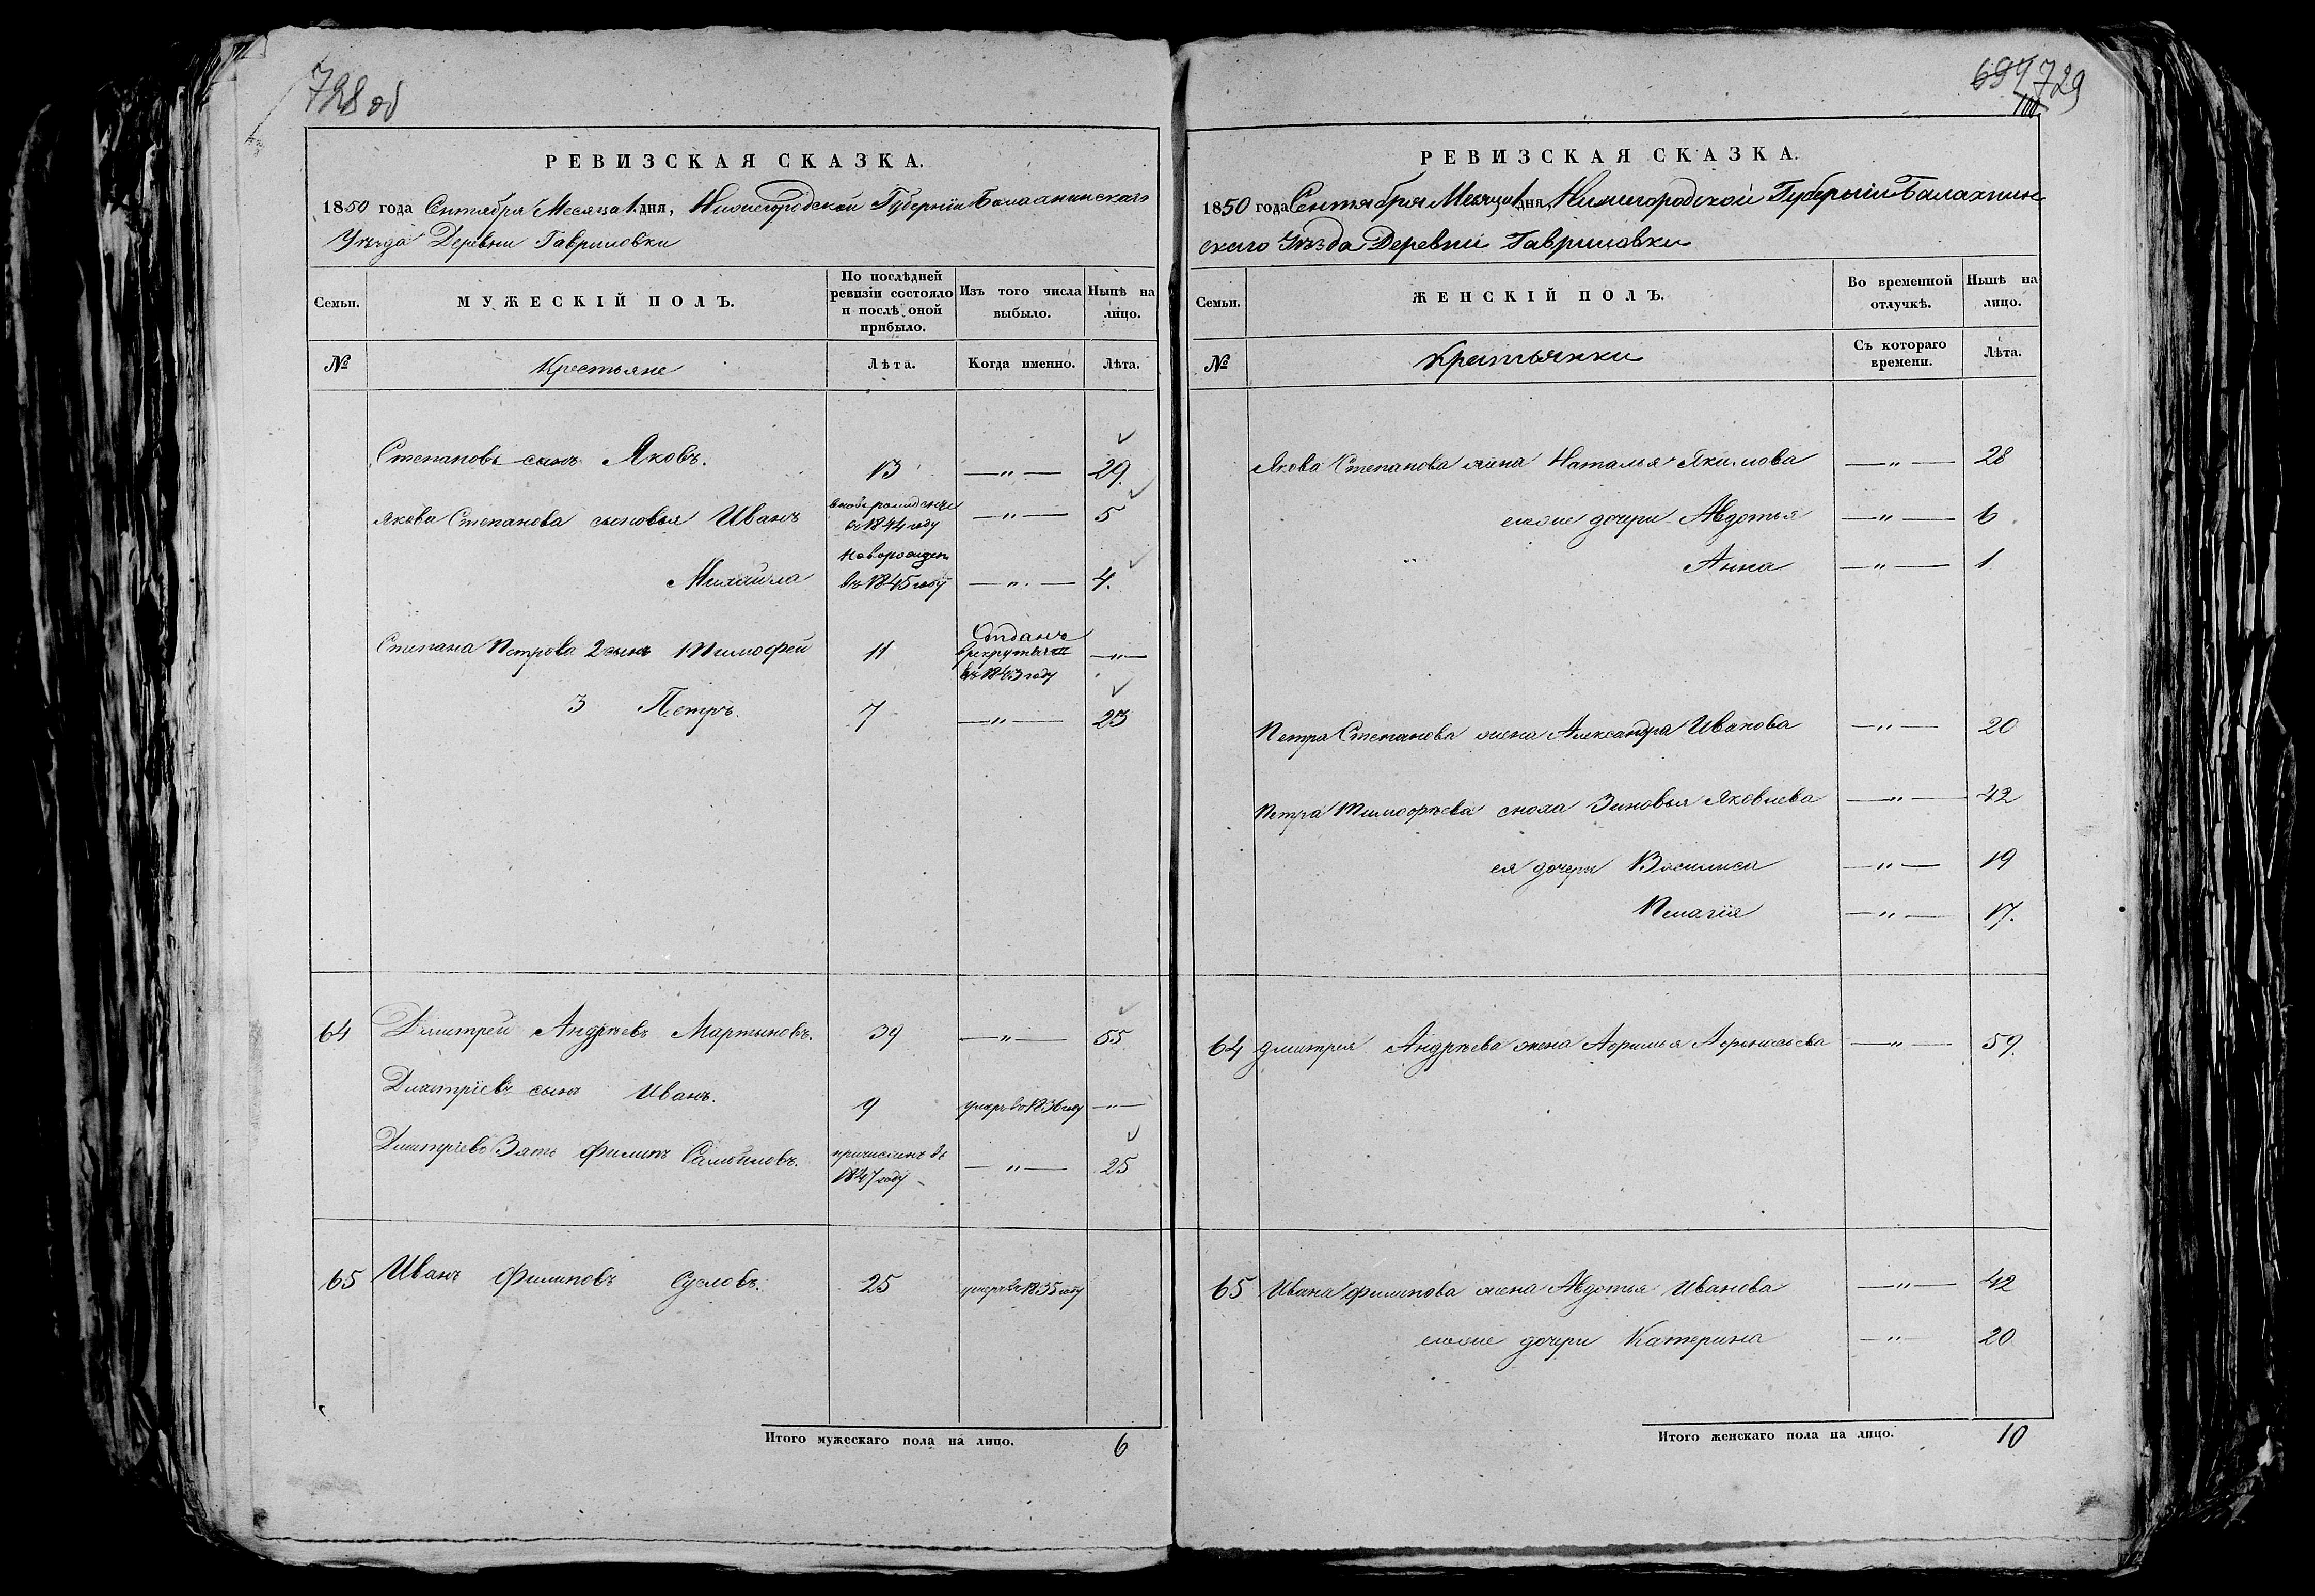 728 об
РЕВИЗСКАЯ СКАЗКА.
1850 года Сентября Месяца 1 дня, Нижегородской Губерніи Балахнинскаго
Уѣзда Деревни Гавриловки
Семьи.
МУЖЕСКІЙ ПОЛЪ.
По послѣдней
ревизіи состояло
и послѣ оной
прибыло.
Изъ того числа
выбыло.
Нынѣ на
лицо.
№
Крестьяне
Лѣта.
Когда именно.
Лѣта.
Степановъ сынъ Яковъ. 13 —„— 29.
Якова Степанова сыновья Иванъ
въ 1844 году —„— 5
Михайла
новорожден
въ 1845 году —„— 4.
Степана Петрова 2 сынъ Тимофей 11
Отданъ
в рекруты
въ 1843 году —„—
3 Петръ. 7 —„— 23
64 Дмитрей Андрѣевъ Мартыновъ. 39 —„— 55
Дмитріевъ сынъ Иванъ. 9 умеръ въ 1836 году —„—
Дмитріевъ Зять Филипъ Самойловъ.
причисленъ въ
1847 году —„— 25
65 Иванъ Филиповъ Сусловъ. 25 умеръ въ 1835 году
Итого мужескаго пола на лицо. 6
697 729
РЕВИЗСКАЯ СКАЗКА.
1850 года Сентября Месяца 1 дня, Нижегородской Губерніи Балахнин
скаго Уѣзда Деревни Гавриловки
Семьи.
ЖЕНСКІЙ ПОЛЪ.
Во временной
отлучкѣ.
Нынѣ на
лицо.
№
Крестьянки
Съ котораго
времени.
Лѣта.
Якова Степанова жена Наталья Якимова —„— 28
дочери Авдотья —„— 6
Анна —„— 1
Петра Степанова жена Александра Иванова —„— 20
Петра Тимофѣева сноха Зиновья Яковлева —„— 42
ея дочери Василиса —„— 19
Пелагія —„— 17.
64 Дмитрія Андрѣева жена —„— 59.
65 Ивана Филипова жена Авдотья Иванова —„— 42
дочери Катерина —„— 20
Итого женскаго пола на лицо. 10